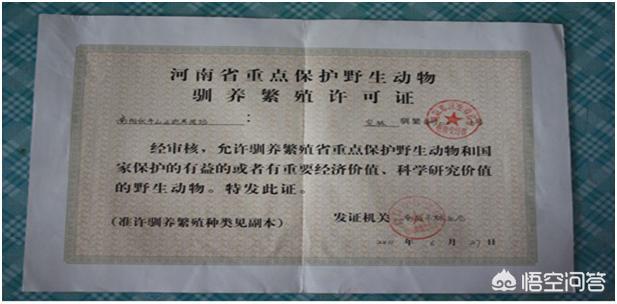 河南省重点保护野生动物
驯养繁殖许可证
：
驯繁
经审核，允许驯养繁殖省重点保护野生动物和国
家保护的有益的或者有重要经济价值、科学研究价值
的野生动物。特发此证。
（准许驯养繁殖种类见副本）
发证机关
年 6 月 27 日
悟空问答